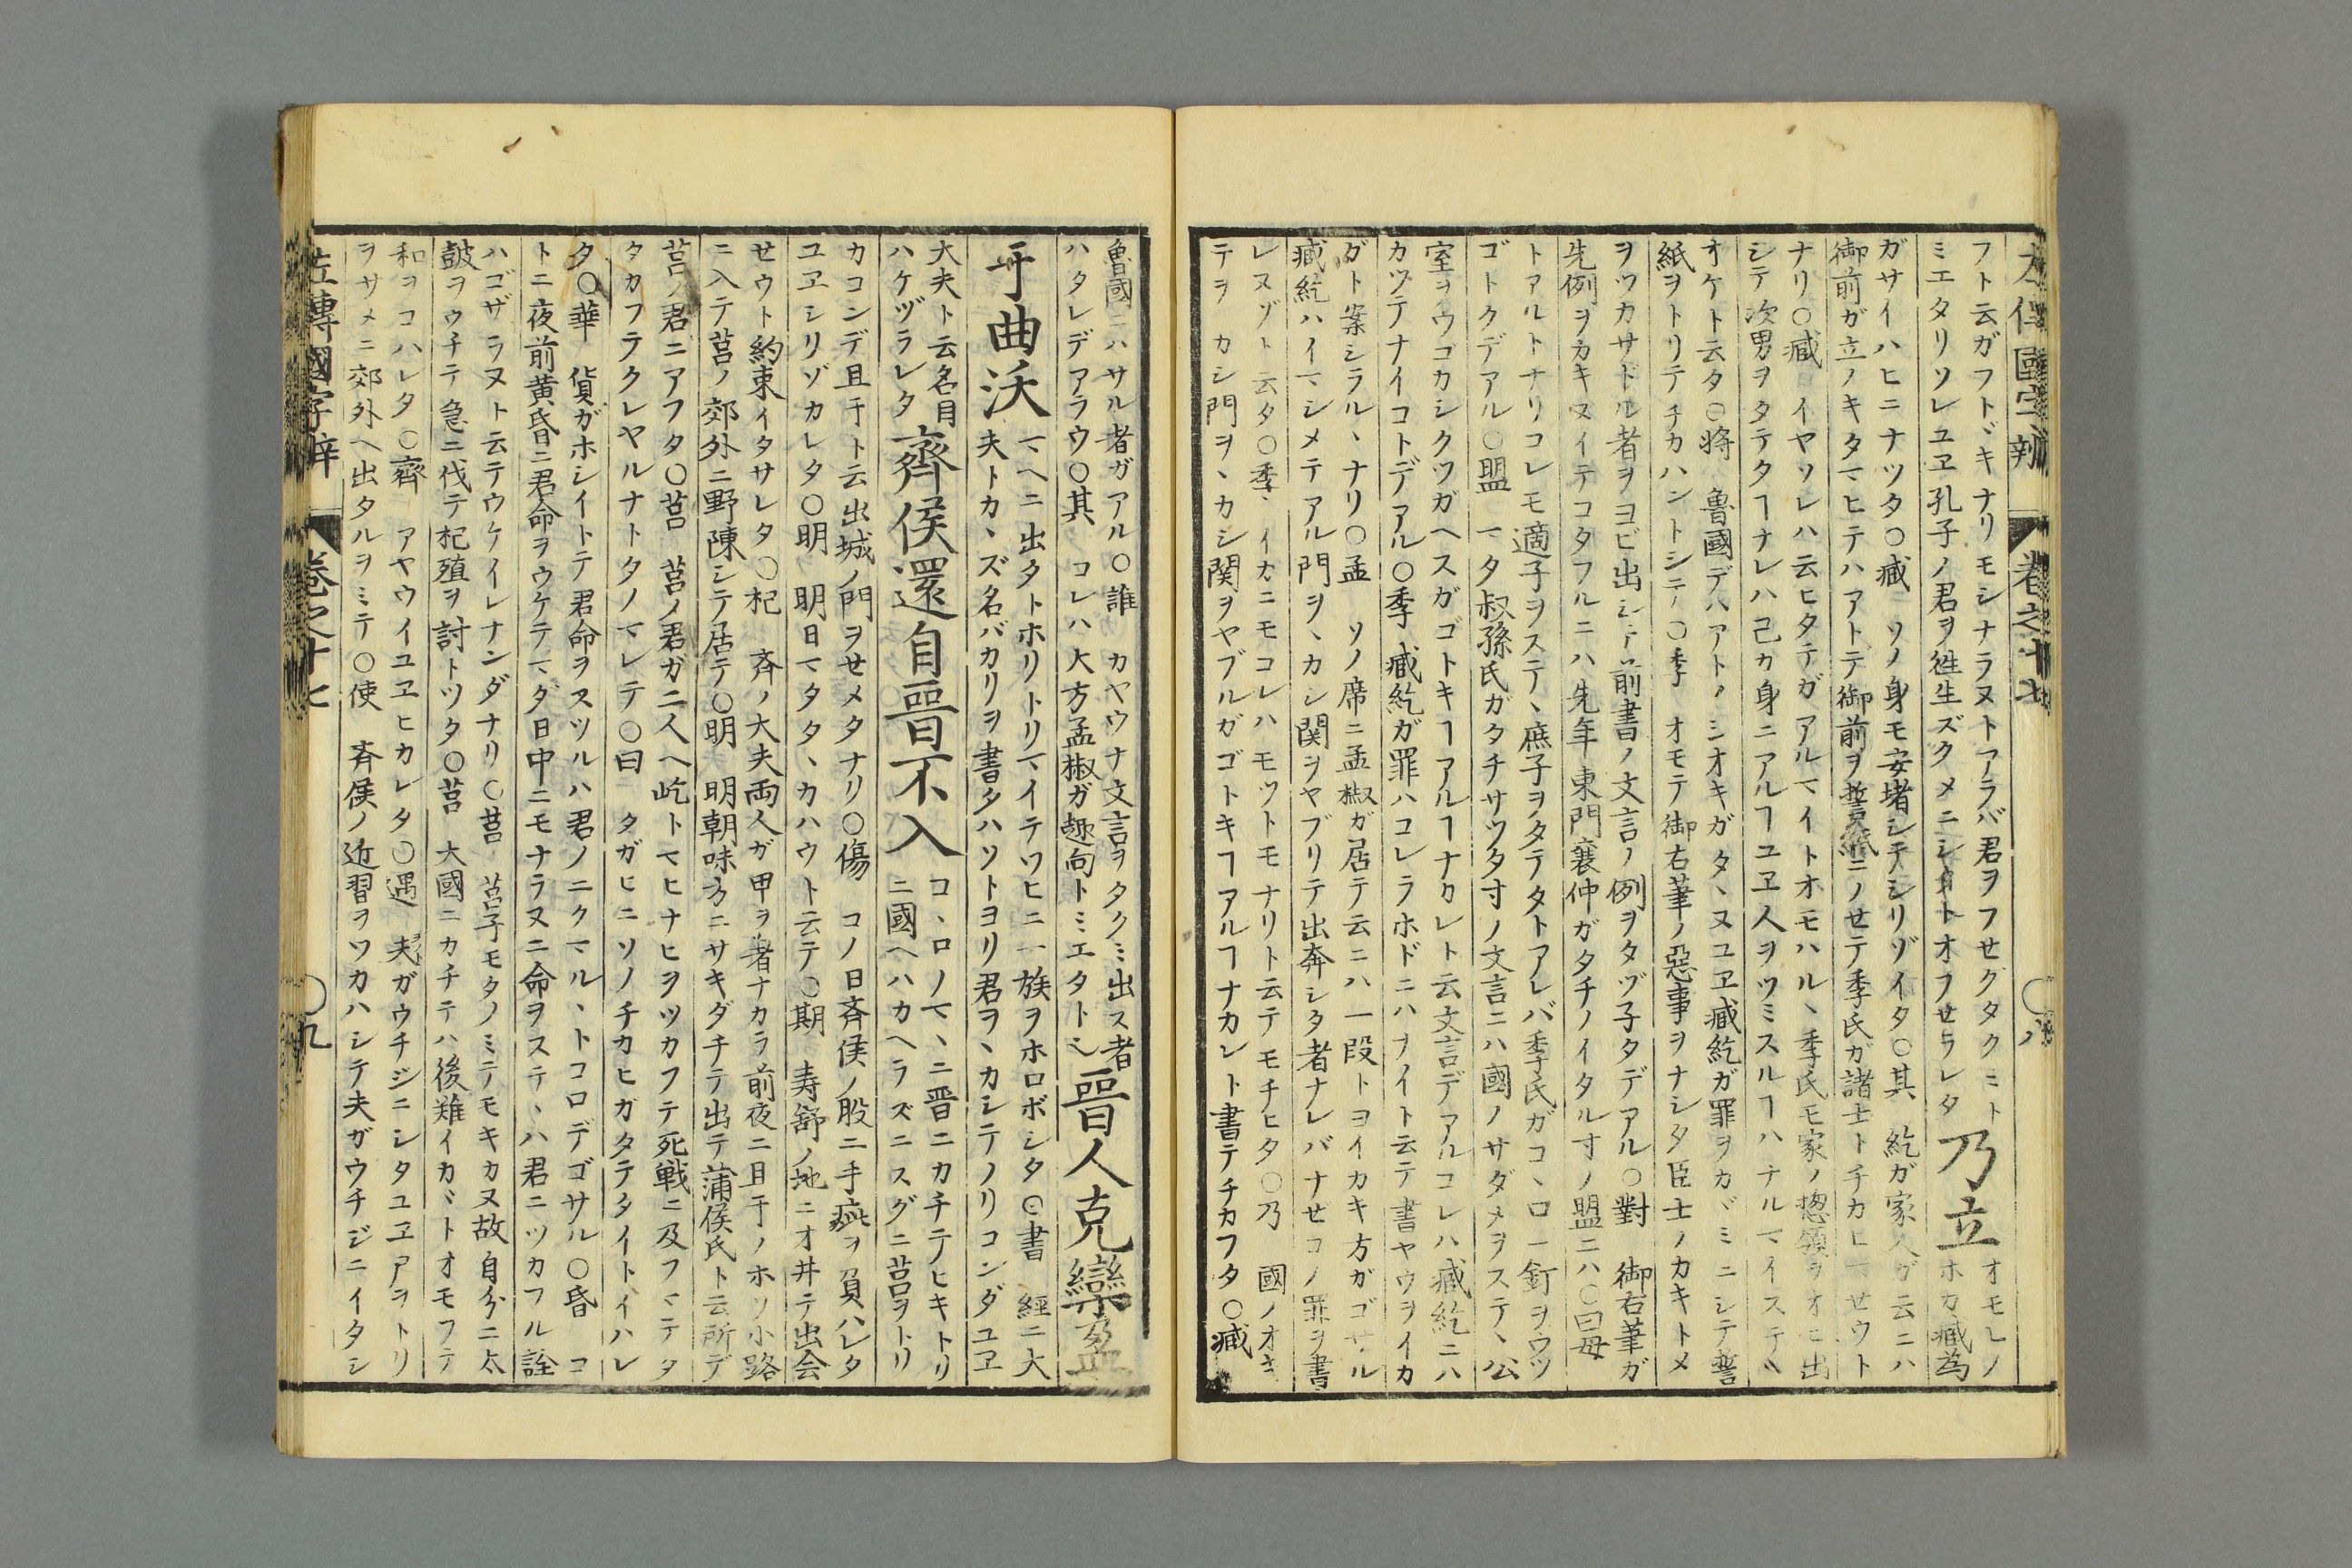 左傳國字辨 卷之十七 〇八
フト云ガフトヾキナリモシナラヌトアラバ君ヲフセグタクミト
ミエタリソレユヱ孔子ノ君ヲ姓生ズクメニシタトオフせラレタ
乃立
オモヒノ
ホカ臧為
ガサイハヒニナツタ〇臧 ソノ身モ安堵シテシリゾイタ〇其 紇ガ家人ガ云ニハ
御前ガ立ノキタマヒテハアトデ御前ヲ誓紙ニノせテ季氏ガ諸士トチカヒマせウト
ナリ〇臧曰イヤソレハ云ヒタテガアルマイトオモハルヽ季氏モ家ノ惣領ヲオヒ出
シテ次男ヲタテタヿナレハ己カ身ニアルヿユヱ人ヲツミスルヿハナルマイステヽ
オケト云タ〇將 魯國デハアトノシオキガタヽヌユヱ臧紇ガ罪ヲカヾミニシテ誓
紙ヲトリテチカハントシテ〇季 オモテ御右筆ノ惡事ヲナシタ臣士ノカキトメ
ヲツカサドル者ヲヨビ出シテ前書ノ文言ノ例ヲタヅ子タデアル〇對 御右筆ガ
先例ヲカキヌイテコタフルニハ先年東門襄仲ガタチノイタル寸ノ盟ニハ〇曰毋
トアルトナリコレモ適子ヲステヽ庶子ヲタテタトアレバ季氏ガコヽロ一釘ヲウツ
ゴトクデアル〇盟 マタ叔孫氏ガタチサツタ寸ノ文言ニハ國ノサダメヲステヽ公
室ヲウゴカシクツガヘスガゴトキヿアルヿナカレト云文言デアルコレハ臧紇ニハ
カツテナイコトデアル〇季 臧紇ガ罪ハコレラホドニハナイト云テ書ヤウヲイカ
ガト案シラルヽナリ〇孟 ソノ席ニ孟椒ガ居テ云ニハ一段トヨイカキ方ガゴサル
臧紇ハイマシメテアル門ヲヽカシ関ヲヤブリテ出奔シタ者ナレバナせコノ罪ヲ書
レヌゾト云タ〇季 イカニモコレハモツトモナリト云テモチヒタ〇乃 國ノオキ
テヲ カシ門ヲヽカシ関ヲヤブルガゴトキヿアルヿナカレト書テチカフタ〇臧
魯國ニハサル者ガアル〇誰 カヤウナ文言ヲタクミ出ス者
ハタレデアラウ〇其 コレハ大方孟椒ガ趣向トミエタトシ
晉人克欒盈
于曲沃
マヘニ出タトホリトリマイテツヒニ一族ヲホロボシタ〇書 經ニ大
夫トカヽズ名バカリヲ書タハソトヨリ君ヲヽカシテノリコンダユヱ
大夫ト云名目
ハケヅラレタ
齊侯還自晉不入
コヽロノマヽニ晋ニカチテヒキトリ
ニ國ヘハカヘラズニスグニ莒ヲトリ
カコンデ且于ト云出城ノ門ヲせメタナリ〇傷 コノ日斉侯ノ股ニ手疵ヲ負ハレタ
ユヱシリゾカレタ〇明 明日マタタヽカハウト云テ〇期 寿舒ノ地ニオ井テ出会
せウト約束イタサレタ〇杞 斉ノ大夫両人ガ甲ヲ着ナカラ前夜ニ且于ノホソ小路
ニ入テ莒ノ郊外ニ野陳シテ居テ〇明 明朝味方ニサキダチテ出テ蒲侯氏ト云所デ
莒ノ君ニアフタ〇莒 莒ノ君ガ二人ヘ屹トマヒナヒヲツカフテ死戦ニ及フマテタ
タカフテクレヤルナトタノマレテ〇曰 タガヒニソノチカヒガタテタイトイハレ
タ〇華 貨ガホシイトテ君命ヲスツルハ君ノニクマルヽトコロデゴサル〇昏 コ
トニ夜前黄昏ニ君命ヲウケテマダ日中ニモナラヌニ命ヲステヽハ君ニツカフル詮
ハゴザラヌト云テウケイレナンダナリ〇莒 莒子モタノミテモキカヌ故自分ニ太
皷ヲウチテ急ニ伐テ杞殖ヲ討トツタ〇莒 大國ニカチテハ後難イカヾトオモフテ
和ヲコハレタ〇齊 アヤウイユヱヒカレタ〇遇 夫ガウチジニシタユヱアヲトリ
ヲサメニ郊外ヘ出タルヲミテ〇使 斉侯ノ近習ヲツカハシテ夫ガウチジニイタシ
左傳國字辨 卷之十七 〇九